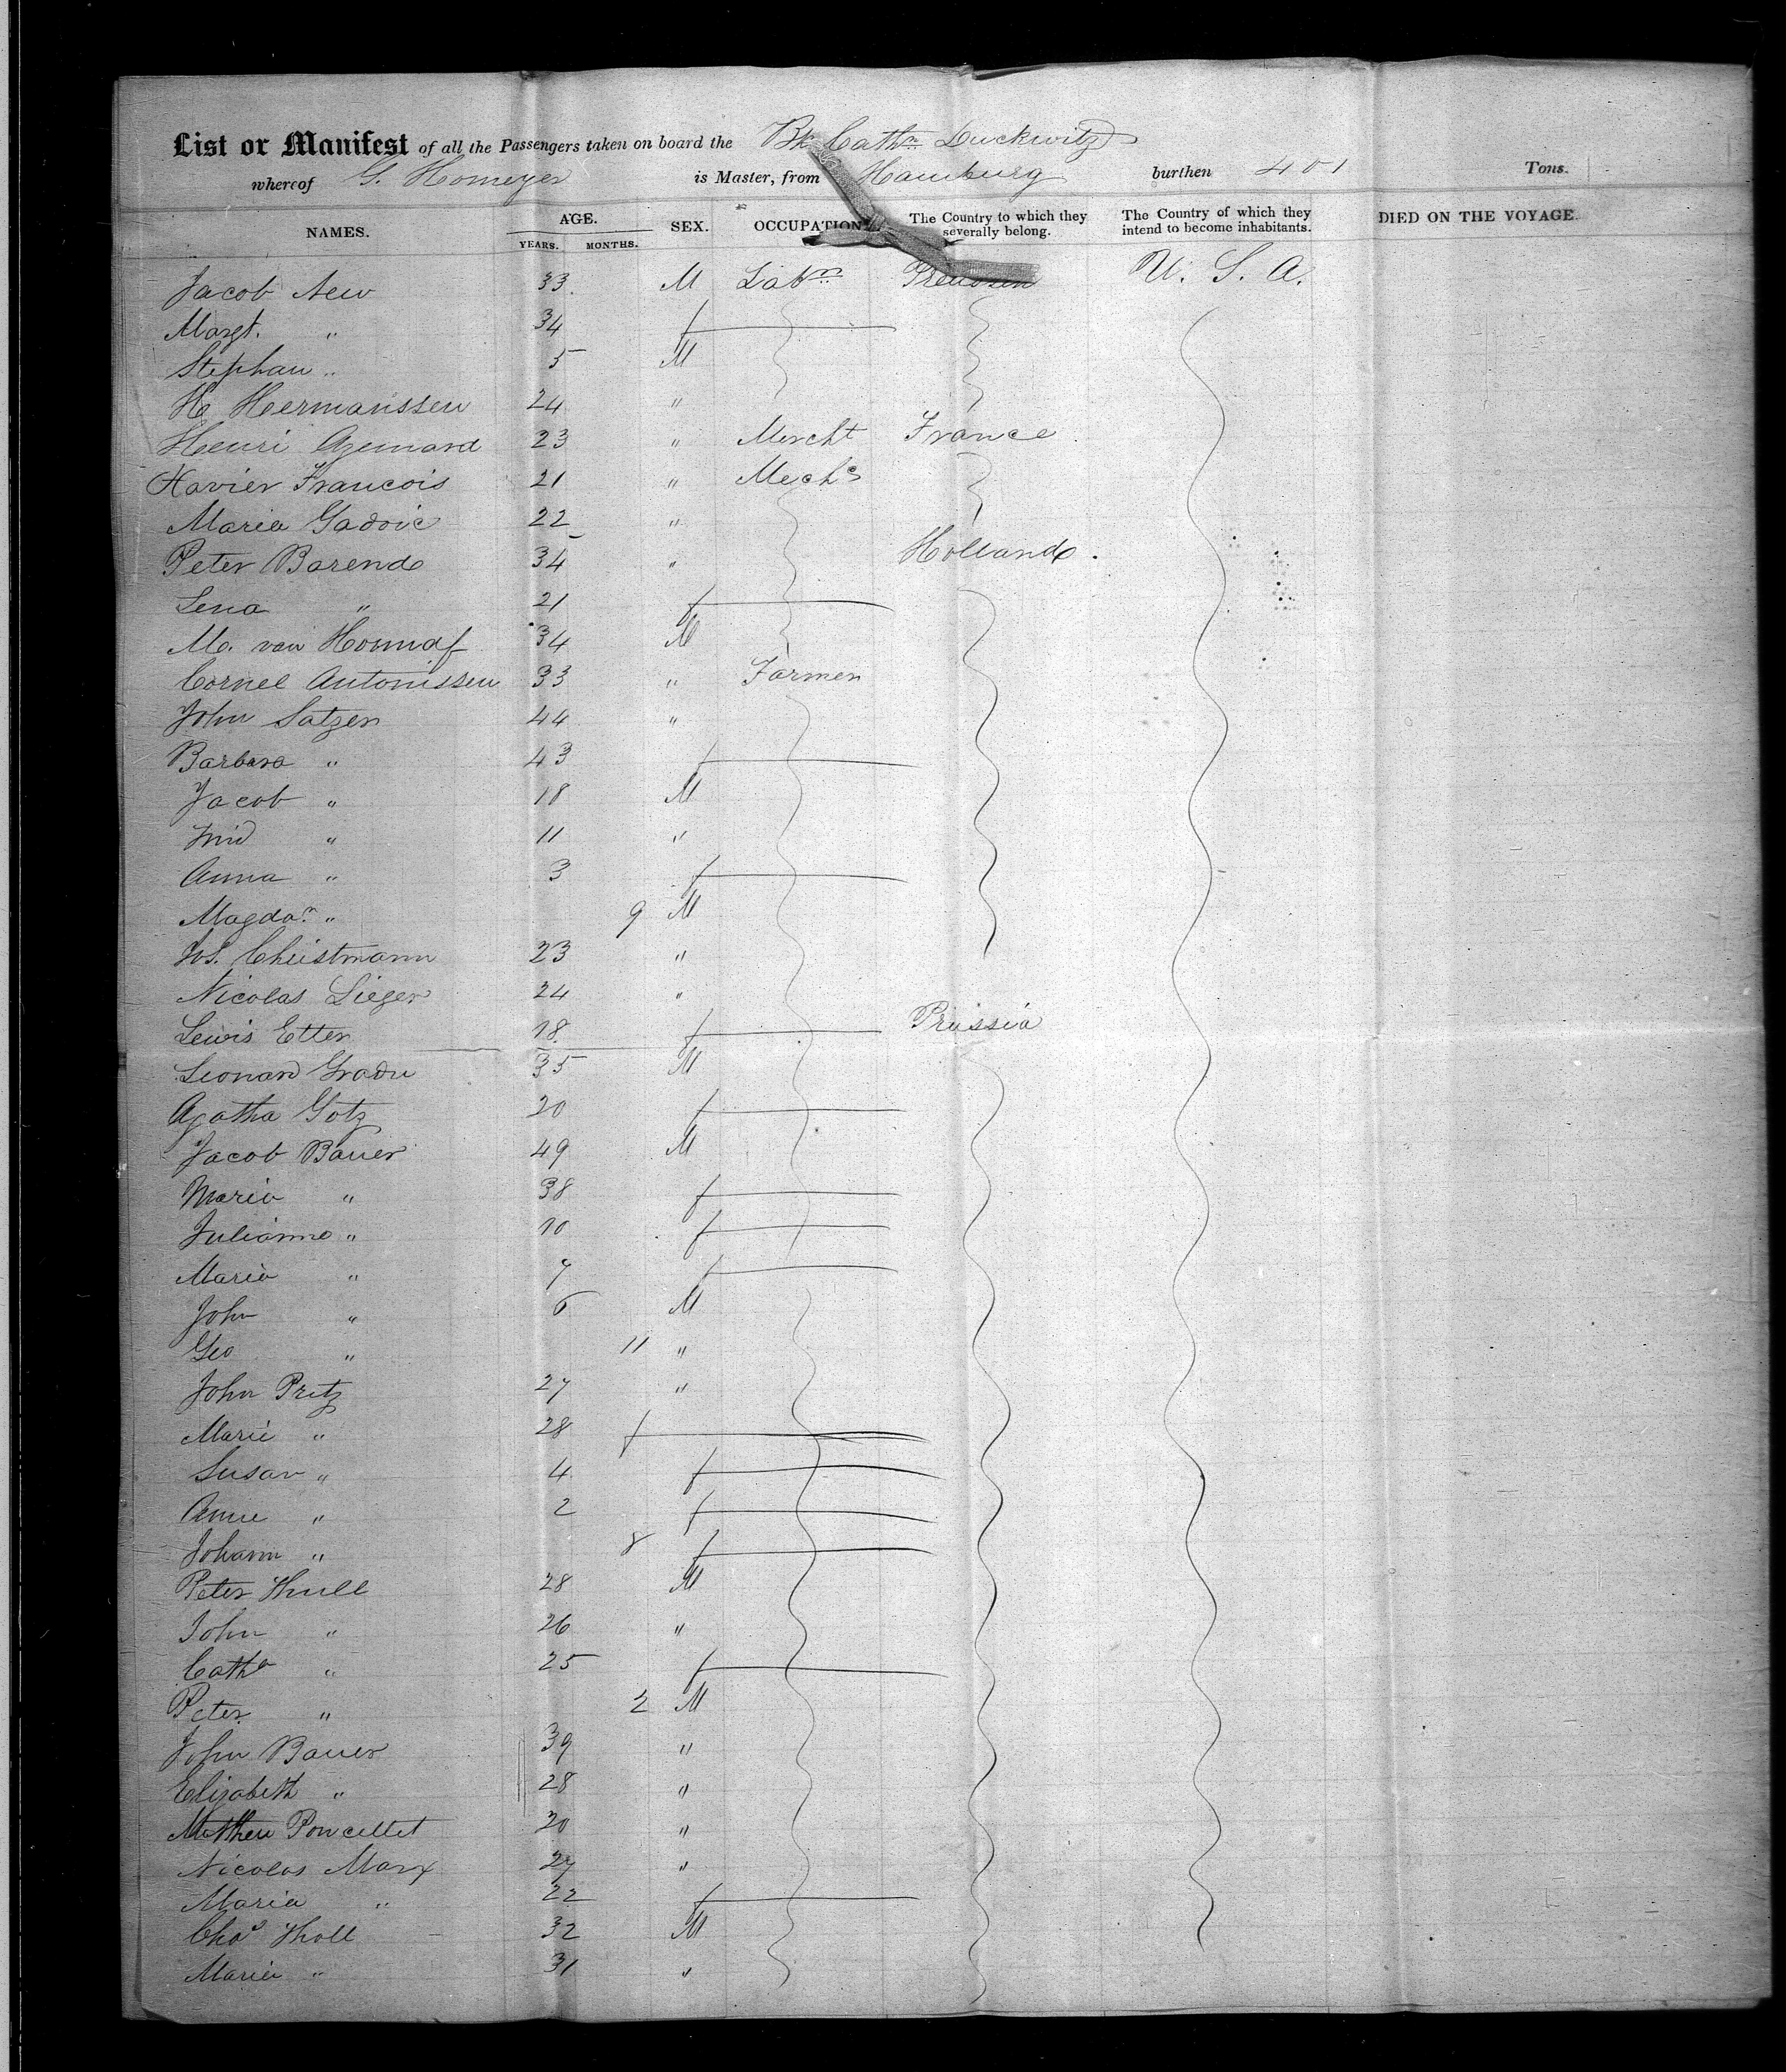 List or Manifest of all the Passengers taken on board the Bk Cathn Luckwitz
whereof G. Homeyer is Master, from Hamburg burthen 401 Tons.
NAMES. AGE. YEARS. MONTHS. SEX. OCCUPATION. The Country to which they severally belong. The Country of which they intend to become inhabitants. DIED ON THE VOYAGE.
Jacob New 33 M Labr Preussen U. S. A.
Margt. " 34 f
Stephan " 5 M
H Hermanssen 24 "
Henri 23 " Mercht France
Xavier Francois 21 " Mechc
Maria Gadoic 22 "
Peter Barends 34 " Holland.
Lena " 21 f
M. van 34 M
Cornel Antonissen 33 " Farmer
John Satzer 44 "
Barbara " 43 f
Jacob " 18 M
" 11 "
Anna " 3 f
Magdan " 9 M
Jos. Christmann 23 "
Nicolas Lieger 24 "
Lewis Etter 18 f Prussia
Leonard 35 M
Agatha Gotz 20 f
Jacob Bauer 49 M
Maria " 38 f
Julianna " 10 f
Maria " 7 f
John " 6 M
Geo " 11 "
John Pritz 27 "
Marie " 28 f
Susan " 4 f
Anne " 2 f
Johann " 8 f
Peter Thull 28 M
John " 26 "
Catha " 25 f
Peter " 2 M
John Bauer 39 "
Elizabeth " 28 "
Mathew Poncellet 20 "
Nicolas Marx 27 "
Maria " 22 f
Chas Tholl 32 M
Maria " 31 "